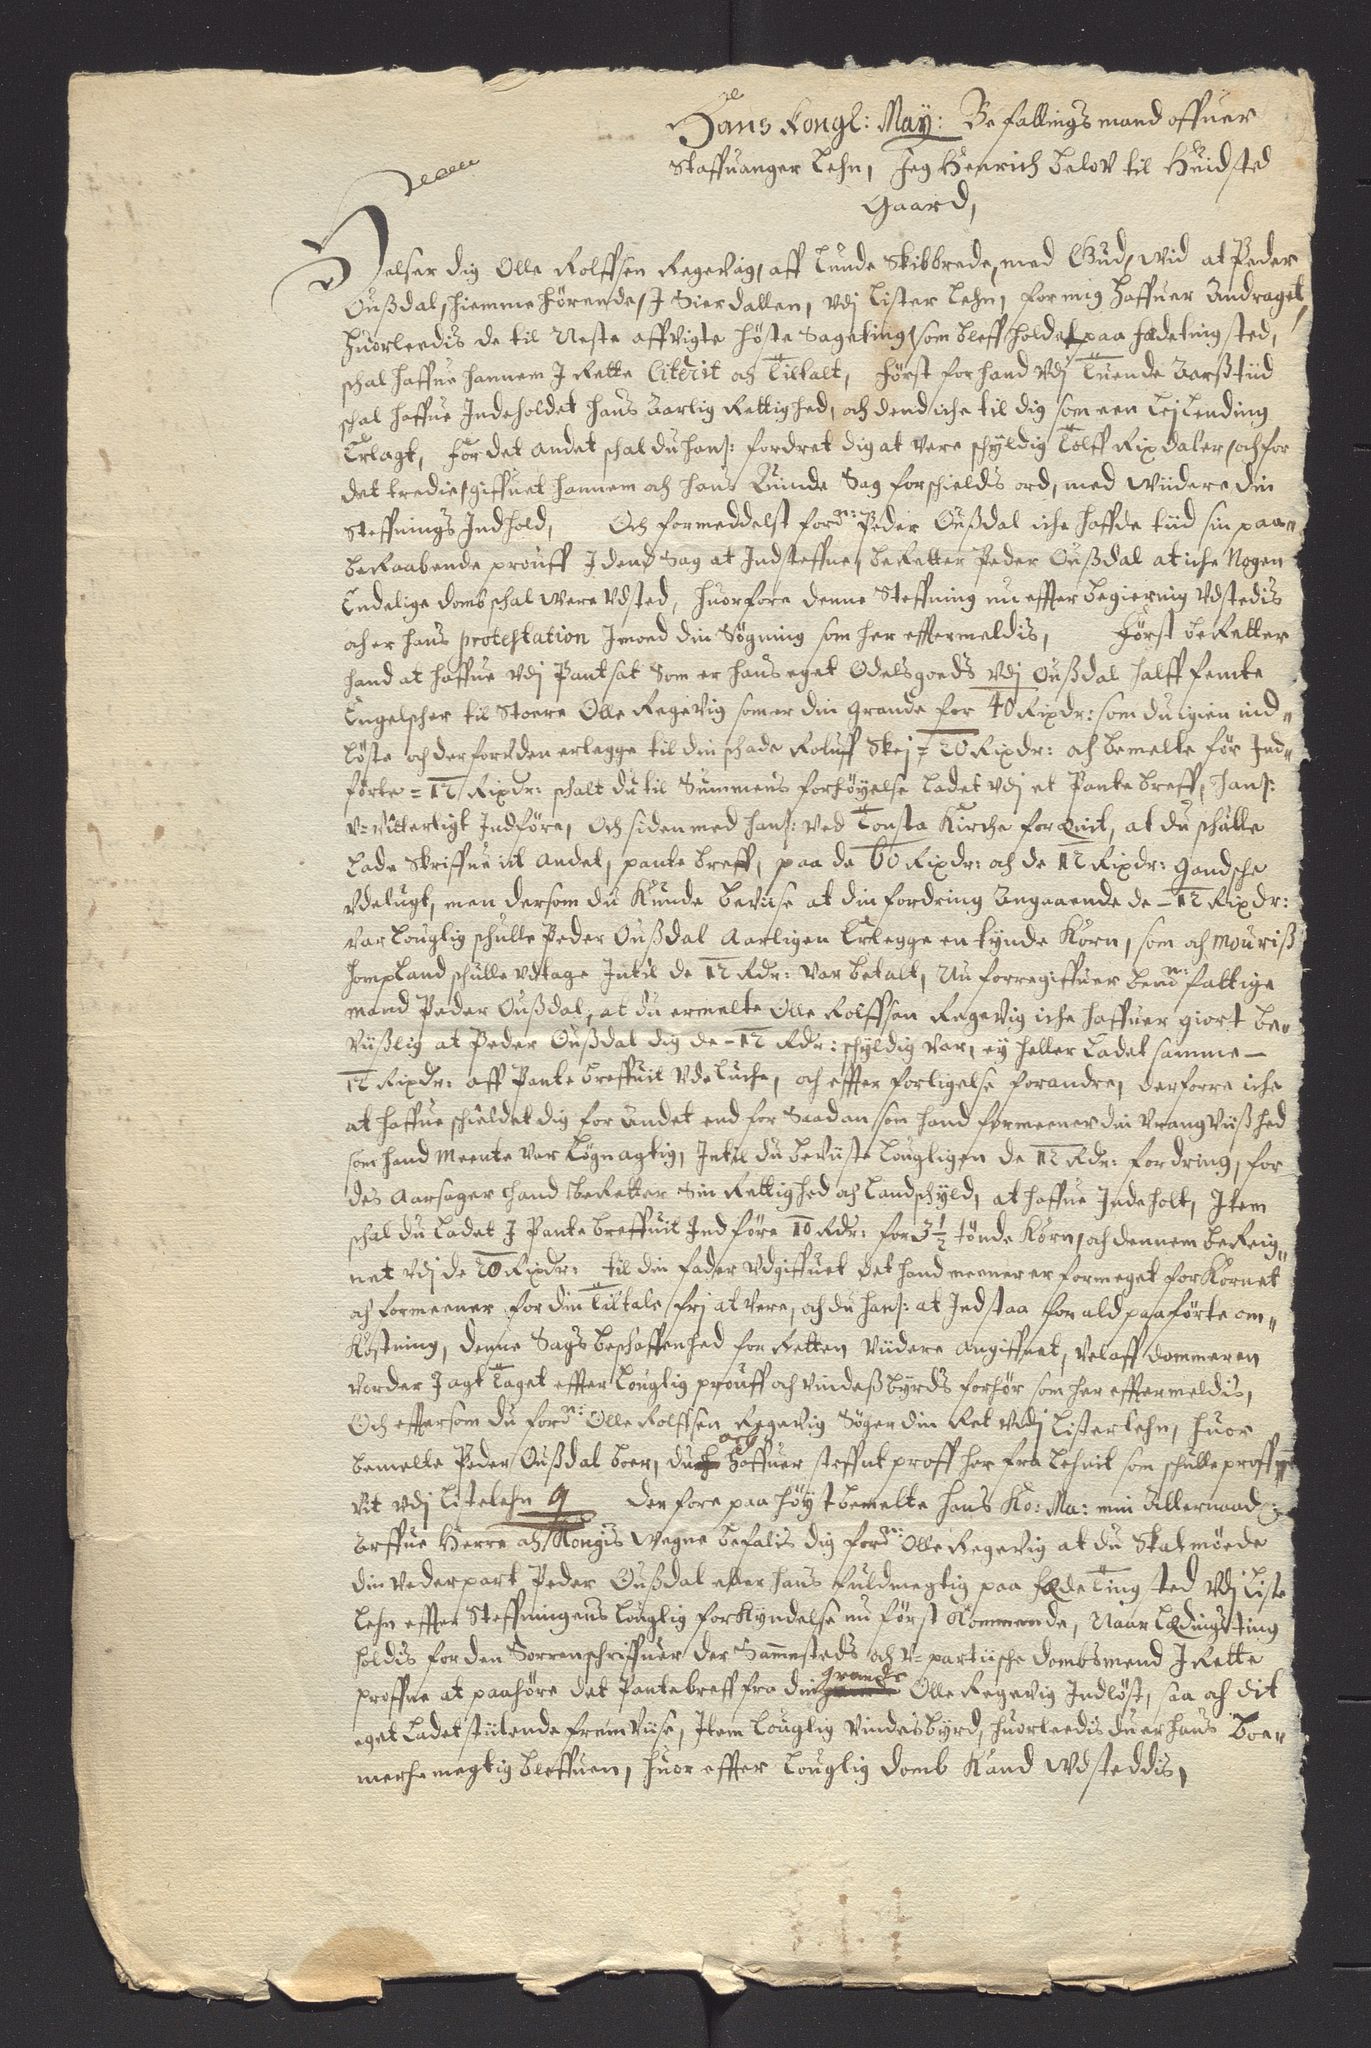 Hans Kongl: May: Befallings mand offuer
Staffuanger Lehn, Jeg Henrich Belov til Huidsted
Gaard,
Helser dig Olle Rolffsen Regevig, aff Lunde Skibbrede, med Gud, Wid at Peder
Oußdal, hiemme hörende, J Sierdallen, vdj Lister Lehn, for mig haffuer Andraget,
huorleedis du til Neste affvigte höste Sageting, som bleff holdet paa Fedeting sted,
schal haffue hannem J Rette Citerit och Tiltalt, Först for hand vdj Tuende Aarßtiid
schal haffue Indeholdet hans Aarlig Rettighed, och dend iche til dig som een Lejlending
Erlagt, For det andet schal du hanß: fordret dig at vere schyldig Tolff Rixdaler, och for
det tredie, giffuet hannem och hans Quinde Sag for schieldts ord, med widere din
Steffnings Indhold, Och formeddelst ford:n Peder Oußdal iche haffde tiid sin paa-
beRaabende prouff J dend Sag at Indsteffne, beRetter Peder Oußdal at iche Nogen
Endelige domb schal were Vdsted, huorfore denne Steffning nu effter begiering vdstedis
och er hans protestation Jmoed din Sögning som her effter meldis, Först beRetter
hand at haffue vdj Pantsat Som er hans eget Odelsgoeds vdj Oußdal halff femte
Engelscher til Stoere Olle Regevig som er din Grande for 40 Rixdr: som du igien ind-
löste och der foruden erlegge til din schade Roluff Skej = 20 Rixdr: och bemelte för Ind-
förte = 12 Rixdr: schalt du til Summens forhöyelse ladet vdj et Pante breff, hanß:
V-vitterligt Indföre, Och siden med hanß: ved Tonsta Kirche forEnit, at du schulle
lade Skriffue it andet, pante breff, paa de 60 Rixdr: och de 12 Rixdr: gandsche
vdelugt, men dersom du Kunde beviise at din fordring Angaaende de - 12 Rixdr:
var louglig schulle Peder Oußdal Aarligen Erlegge en tynde Korn, som och Mouriß
Hompland schulle vdtage Intil de 12 Rdr: var betalt, Nu forregiffuer bem:n fattige
mand Peder Oußdal, at du ermelte Olle Rolffsen Regevig iche haffuer giort be-
viißlig at Peder Oußdal dig de - 12 Rdr: schyldig var, ey heller ladet samme -
12 Rixdr: aff Pante breffuit vdeluche, och effter forligelse forandre, derforre iche
at haffue schieldet dig for Andet end for Saadan som hand formeener din Vrangviißhed
som hand Meente var Lögnagtig, Intil du beviiste lougligen de 12 Rdr: fordring, for
des Aarsager hand beRetter Sin Rettighed och Landschyld, at haffue Indeholt, Item
schal du ladet J Pante breffuit Indföre 10 Rdr: for 3½ tönde Korn, och dennem beReig-
net vdj de 20 Rixdr: til din fader vdgiffuet det hand meener er formeget for Kornet
och formeener for din Tiltale frj at vere, och du hanß: at Indstaa for ald paaförte om-
Kostning, denne Sags beschaffenhed for Retten viidere angiffuet, vel aff dommeren
vorder J agt Taget effter louglig prouff och vindeßbyrds forhör som her effter meldis,
Och effersom du ford:n Olle Rolffsen Regevig Söger din Ret vdj Lister Lehn, huor
bemelte Peder Oußdal boer, du och haffuer steffnt proff her fra Lehnit som schulle proff
vit vdj Listelehn Derfore paa höyst bemelte hans Ko: Ma: min Allernaad
Arffue Herre och Kongis Wegne befalis dig ford:n Olle Regevig at du Skal möede
din vederpart Peder Oußdal eller hans fuldmegtig paa Fede Ting sted vdj Liste
Lehn effter Steffningens louglig forKyndelse nu först Kommende, Naar Ledings ting
holdis for den Sorrenschriffuer der Sammesteds och V-partiische dombsmend J Rette
proffue at paahöre det Pantebreff fra din grande Olle Regevig Indlöst, saa och dit
eget ladet stiilende frem viise, Item louglig vindesbyrd, huorleedis du er hans boe-
merche megtig bleffuen, huor effter louglig domb Kand Vdsteddis,